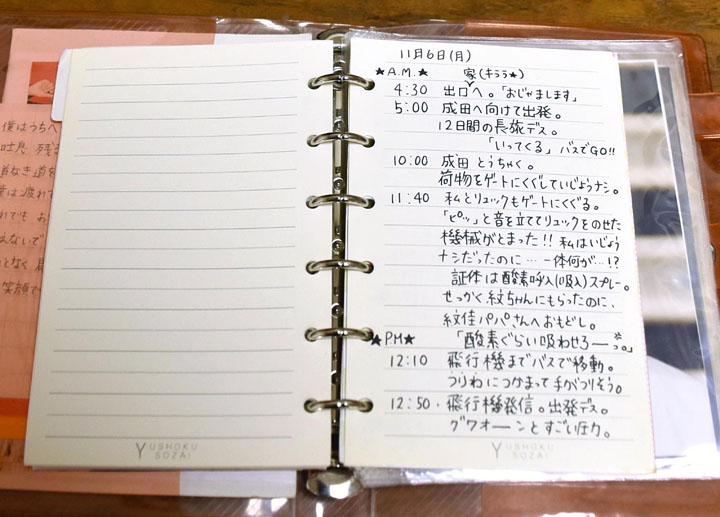 僕はうちへ
吐息 残
道なき道を
は疲れて
れでも お
えないで
となく
笑顔で
YUSHOKU
SOZAI
11月6日(月)
★A.M.★ 家(キララ★)
4:30 出口へ。「おじゃまします」
5:00 成田へ向けて出発。
12日間の長旅デス。
「いってくる」バスでGO!!
10:00 成田 とうちゃく。
荷物をゲートにくぐしていじょうナシ。
11:40 私とリュックもゲートにくぐる。
「ピッッ」と音を立ててリュックをのせた
機械がとまった!! 私はいじょう
ナシだったのに… 一体何が…!?
証体は酸素呼入(吸入)スプレー。
せっかく紋ちゃんにもらったのに、
紋佳パパさんへおもどし。
★PM★ 「酸素ぐらい吸わせろー。
12:10 飛行機までバスで移動。
つりわにつかまって手がつりそう。
12:50・飛行機発信。出発デス。
グワオーンとすごい圧力。
YUSHOKU
SOZAI